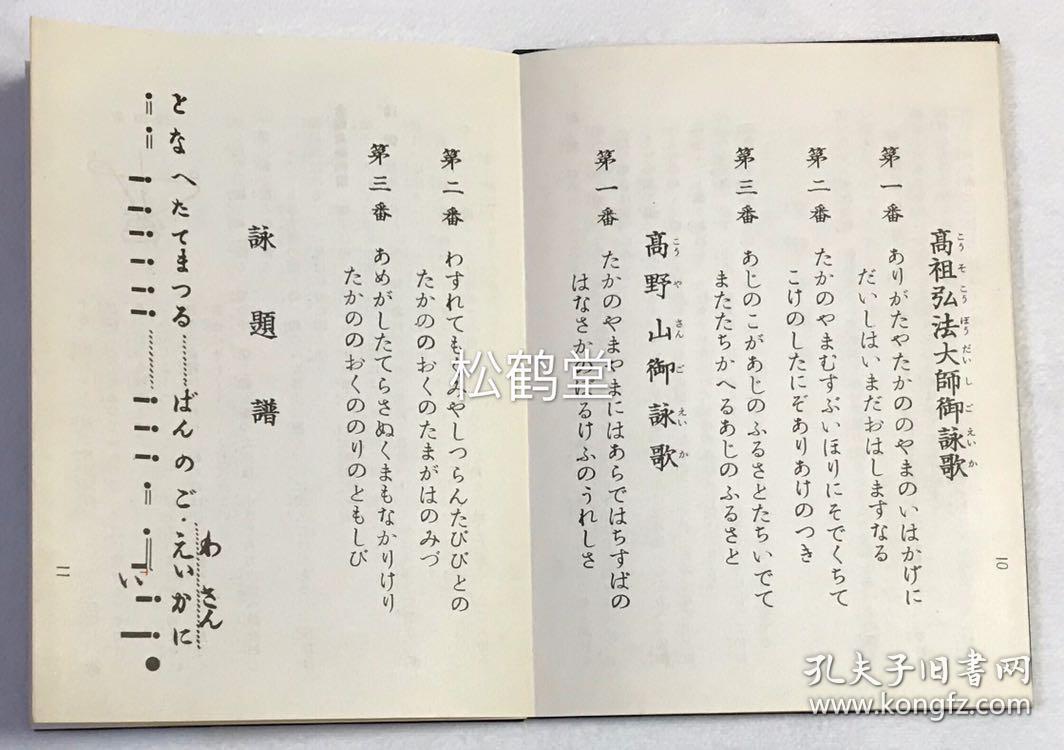 高祖弘法大師御詠歌
こうそこうぼうだいしごえいか
第一番 ありがたやたかののやまのいはかげに
だいしはいまだおはしますなる
第二番 たかのやまむすぶいほりにそでくちて
こけのしたにぞありあけのつき
第三番 あじのこがあじのふるさとたちいでて
またたちかへるあじのふるさと
高野山御詠歌
こうやさんごえいか
第一番 たかのやまやまにはあらではちすばの
はなさかのぼるけふのうれしさ
一〇
第二番 わすれてもくみやしつらんたびびとの
たかののおくのたまがはのみづ
第三番 あめがしたてらさぬくまもなかりけり
たかののおくののりのともしび
詠題譜
となへたてまつる……ばんのご.えいかに
わさん
い
一一
松鹤堂
孔夫子旧书网
www.kongfz.com